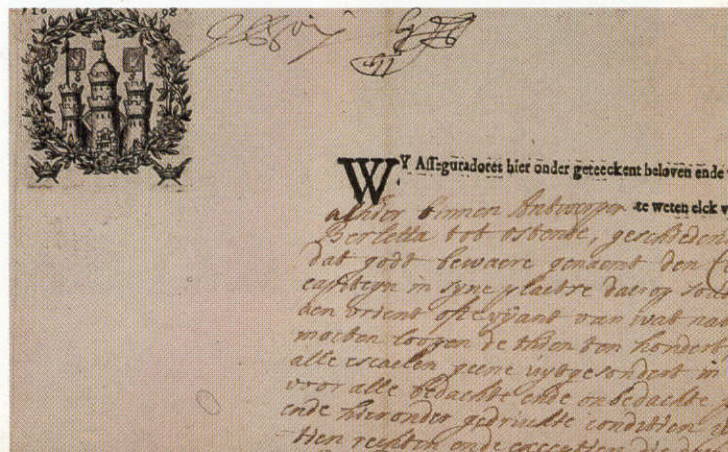 WY Asseguradores hier onder geteeckent beloven ende
alhier binnen Antwerpen te weten elck v
Berletta tot ostende, geschieden
dat godt bewaere genaemt den
capiteyn in syne plaetse daer op
den vrient ofte vyant van wat nat
moeten loopen de thien ten hondert
alle escaelen geene uytgesondert in
voor alle bedachte ende onbedachte
ende hieronder gedruckte conditien
tien rechten ende exceptien die